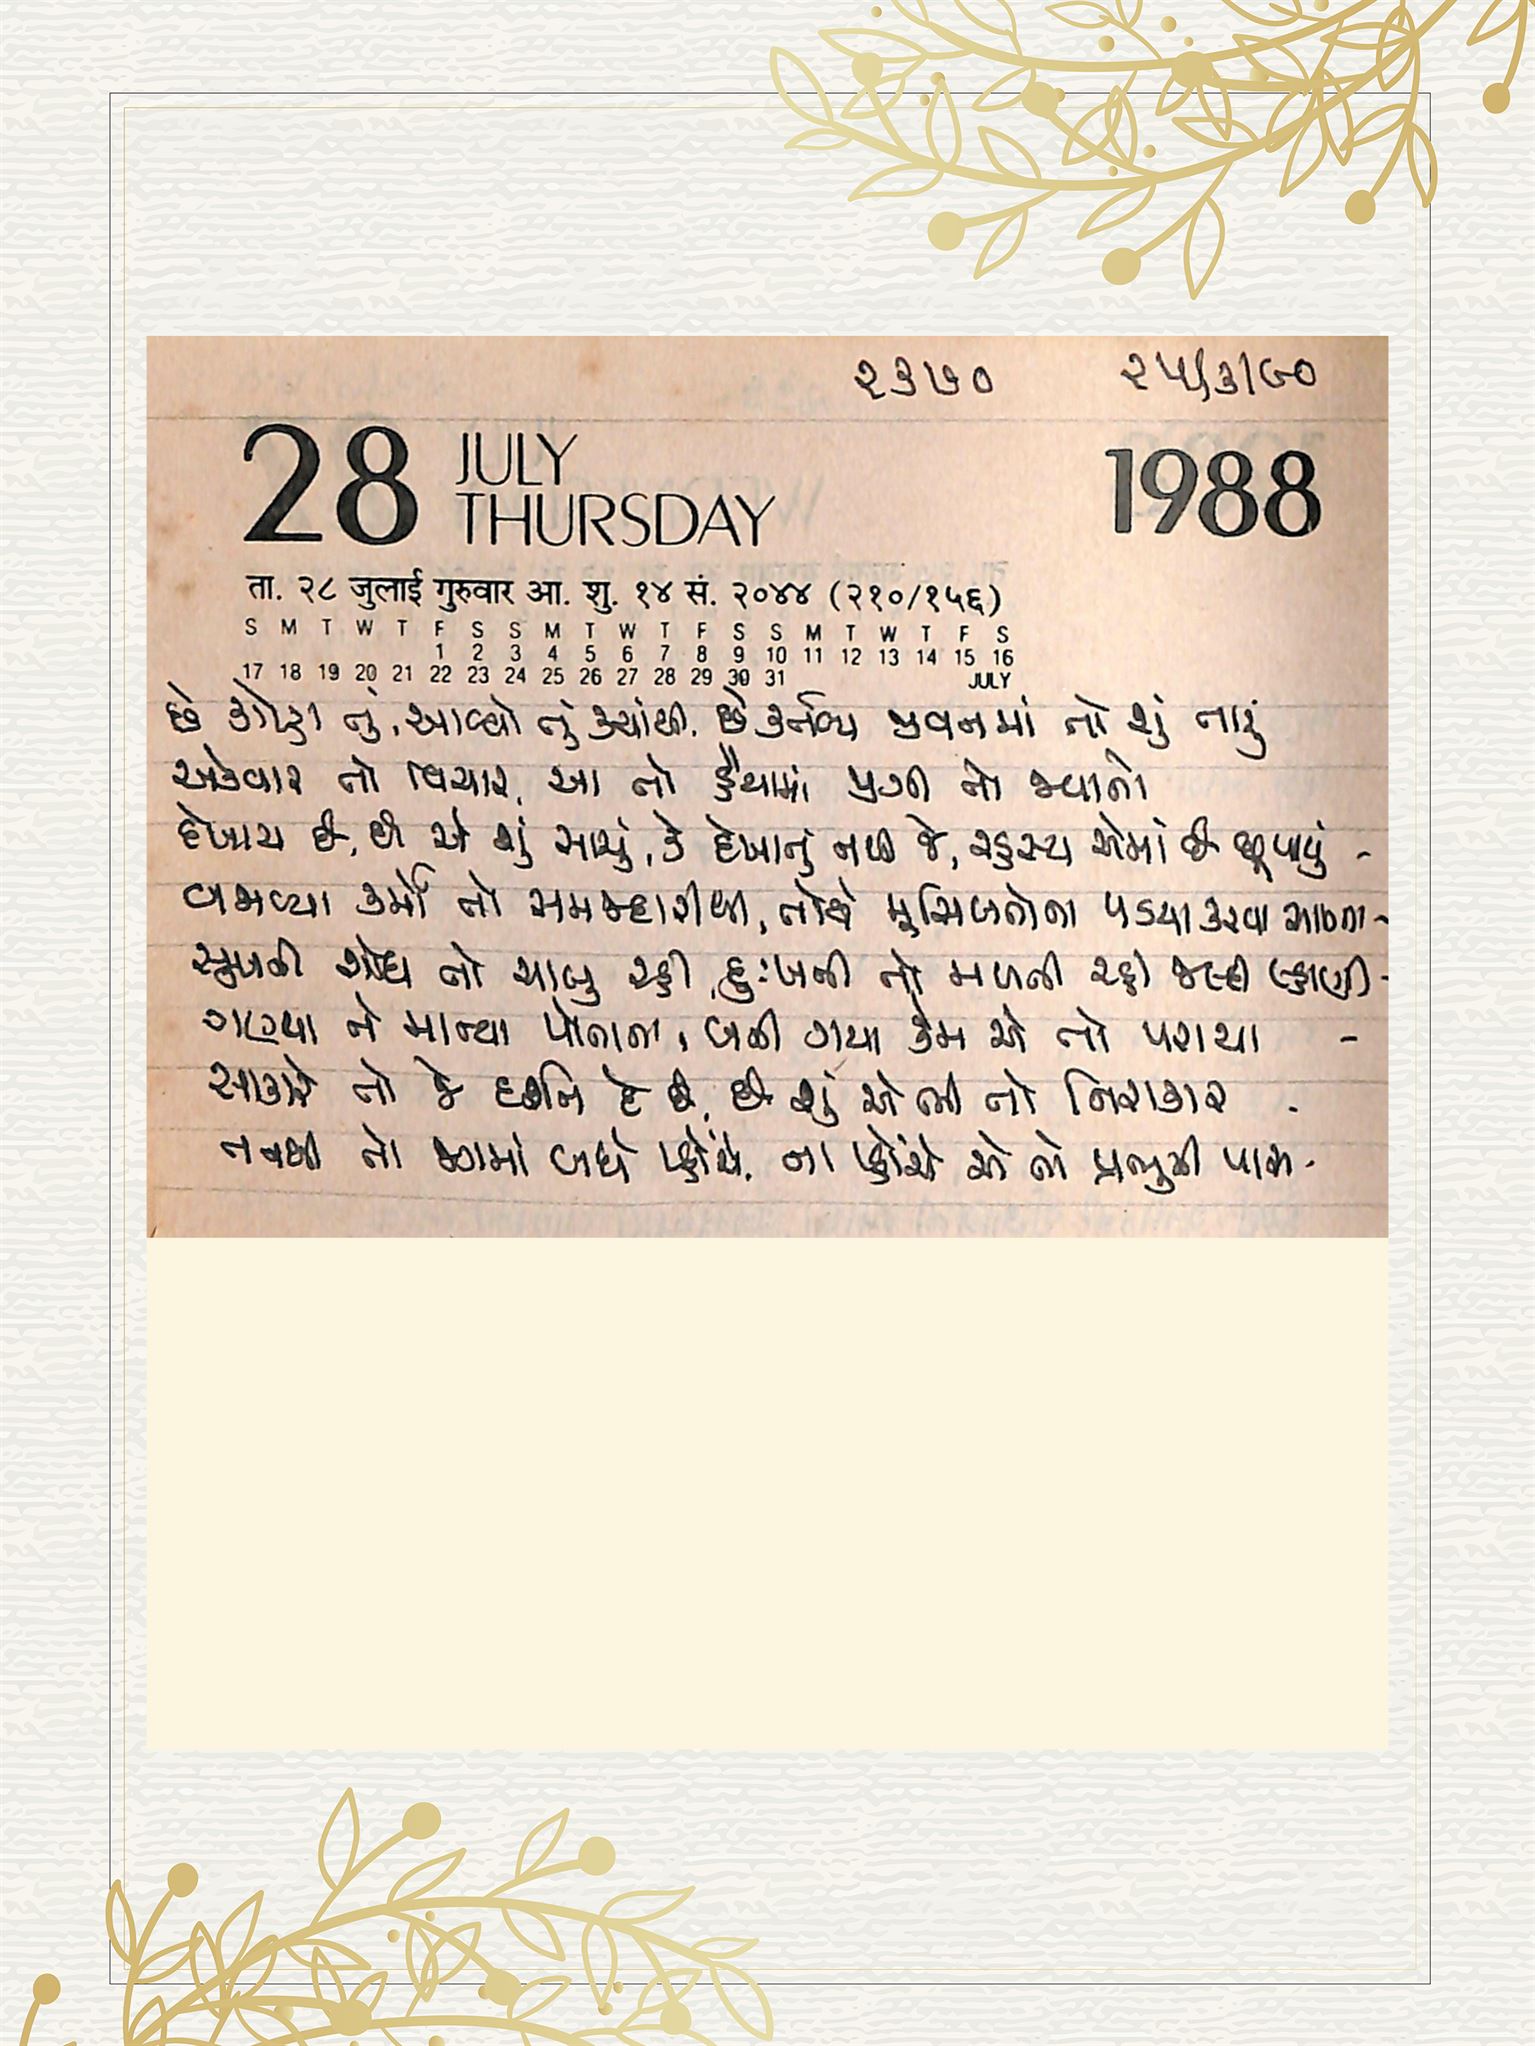 ૨૩૭૦ ૨૫/૩/૯૦
28 JULY THURSDAY 1988
ता. २८ जुलाई गुरुवार आ. शु. १४ सं. २०४४ (२१०/१५६)
S M T W T F S S M T W T F S S M T W T F S
1 2 3 4 5 6 7 8 9 10 11 12 13 14 15 16
17 18 19 20 21 22 23 24 25 26 27 28 29 30 31 JULY
છે કોણ તું, આવ્યો તું ક્યાંથી, છે કર્તવ્ય જીવનમાં તો શું તારું
એકવાર તો વિચાર, આ તો હૈયામાં જરી તો
દેખાય છે, છે એ શું સાચું, કે દેખાતું નથી જે, રહસ્ય એમાં છે છૂપાયું -
બજાવ્યા કર્મો તો સમજદારીથી, તોયે મુસિબતોના પડયા કરવા સામના -
સુખની શોધ તો ચાલુ રહી, દુઃખની તો મળતી રહી જલ્દી લ્હાણી -
ગણ્યા ને માન્યા પોતાના, બની ગયા કેમ એ તો પરાયા -
સાકારે તો જે દર્શન દે છે, છે શું એ ભી તો નિરાકાર -
નજર તો જગમાં બધે પહોંચે, ના પહોંચે એ તો પ્રભુની પાસ -